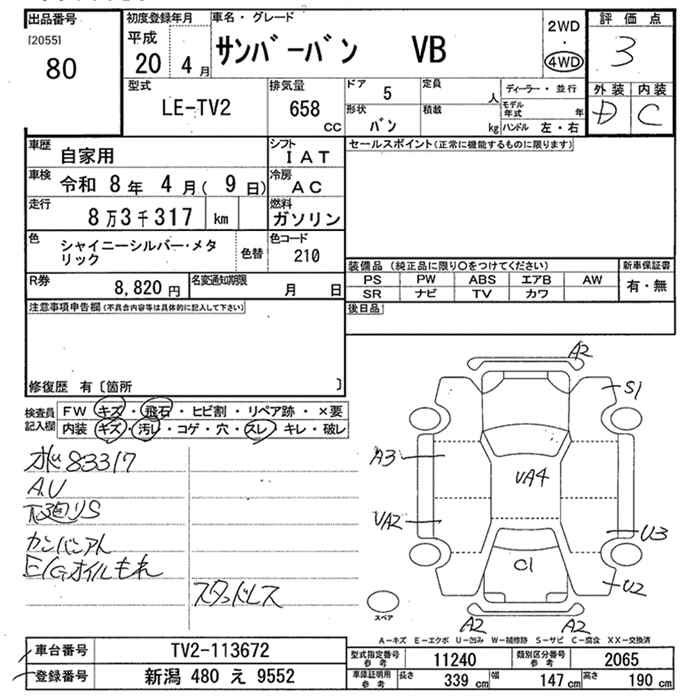 出品番号
[2055]
80
初度登録年月
平成
20 4 月
車名・グレード
サンバーバン VB
2WD
・
4WD
評価点
3
外装 内装
D C
型式
LE-TV2
排気量
658 CC
ドア 5
形状 バン
定員 人
積載 kg
ディーラー・並行
モデル年式 年
ハンドル 左・右
車歴
自家用
シフト
IAT
車検
令和 8 年 4 月( 9 日)
冷房
AC
走行
8 万 3 千 317 km
燃料
ガソリン
色
シャイニーシルバー・メタ
リック
色替
色コード
210
R券
8,820 円
名変通知期限
月 日
注意事項申告欄(不具合内容等は具体的に記入して下さい)
修復歴 有〔箇所 〕
セールスポイント(正常に機能するものに限ります)
装備品 (純正品に限り○をつけてください)
PS PW ABS エアB AW
SR ナビ TV カワ
新車保証書
有・無
後日品
検査員
記入欄
FW キズ・飛石・ヒビ割・リペア跡・×要
内装 キズ・汚レ・コゲ・穴・スレ・キレ・破レ
83317
A.U
S
カンバンアト
E/Gオイルもれ
スタッドレス
A2
S1
A3
UA4
UA2
U3
C1
U2
A2
A2
スペア
A-キズ E-エクボ U-凹み W-補修跡 S-サビ C-腐食 XX-交換済
車台番号
TV2-113672
登録番号
新潟 480 え 9552
型式指定番号
参考
11240
類別区分番号
参考
2065
車庫証明用
参考
長さ 339 cm 幅 147 cm 高さ 190 cm